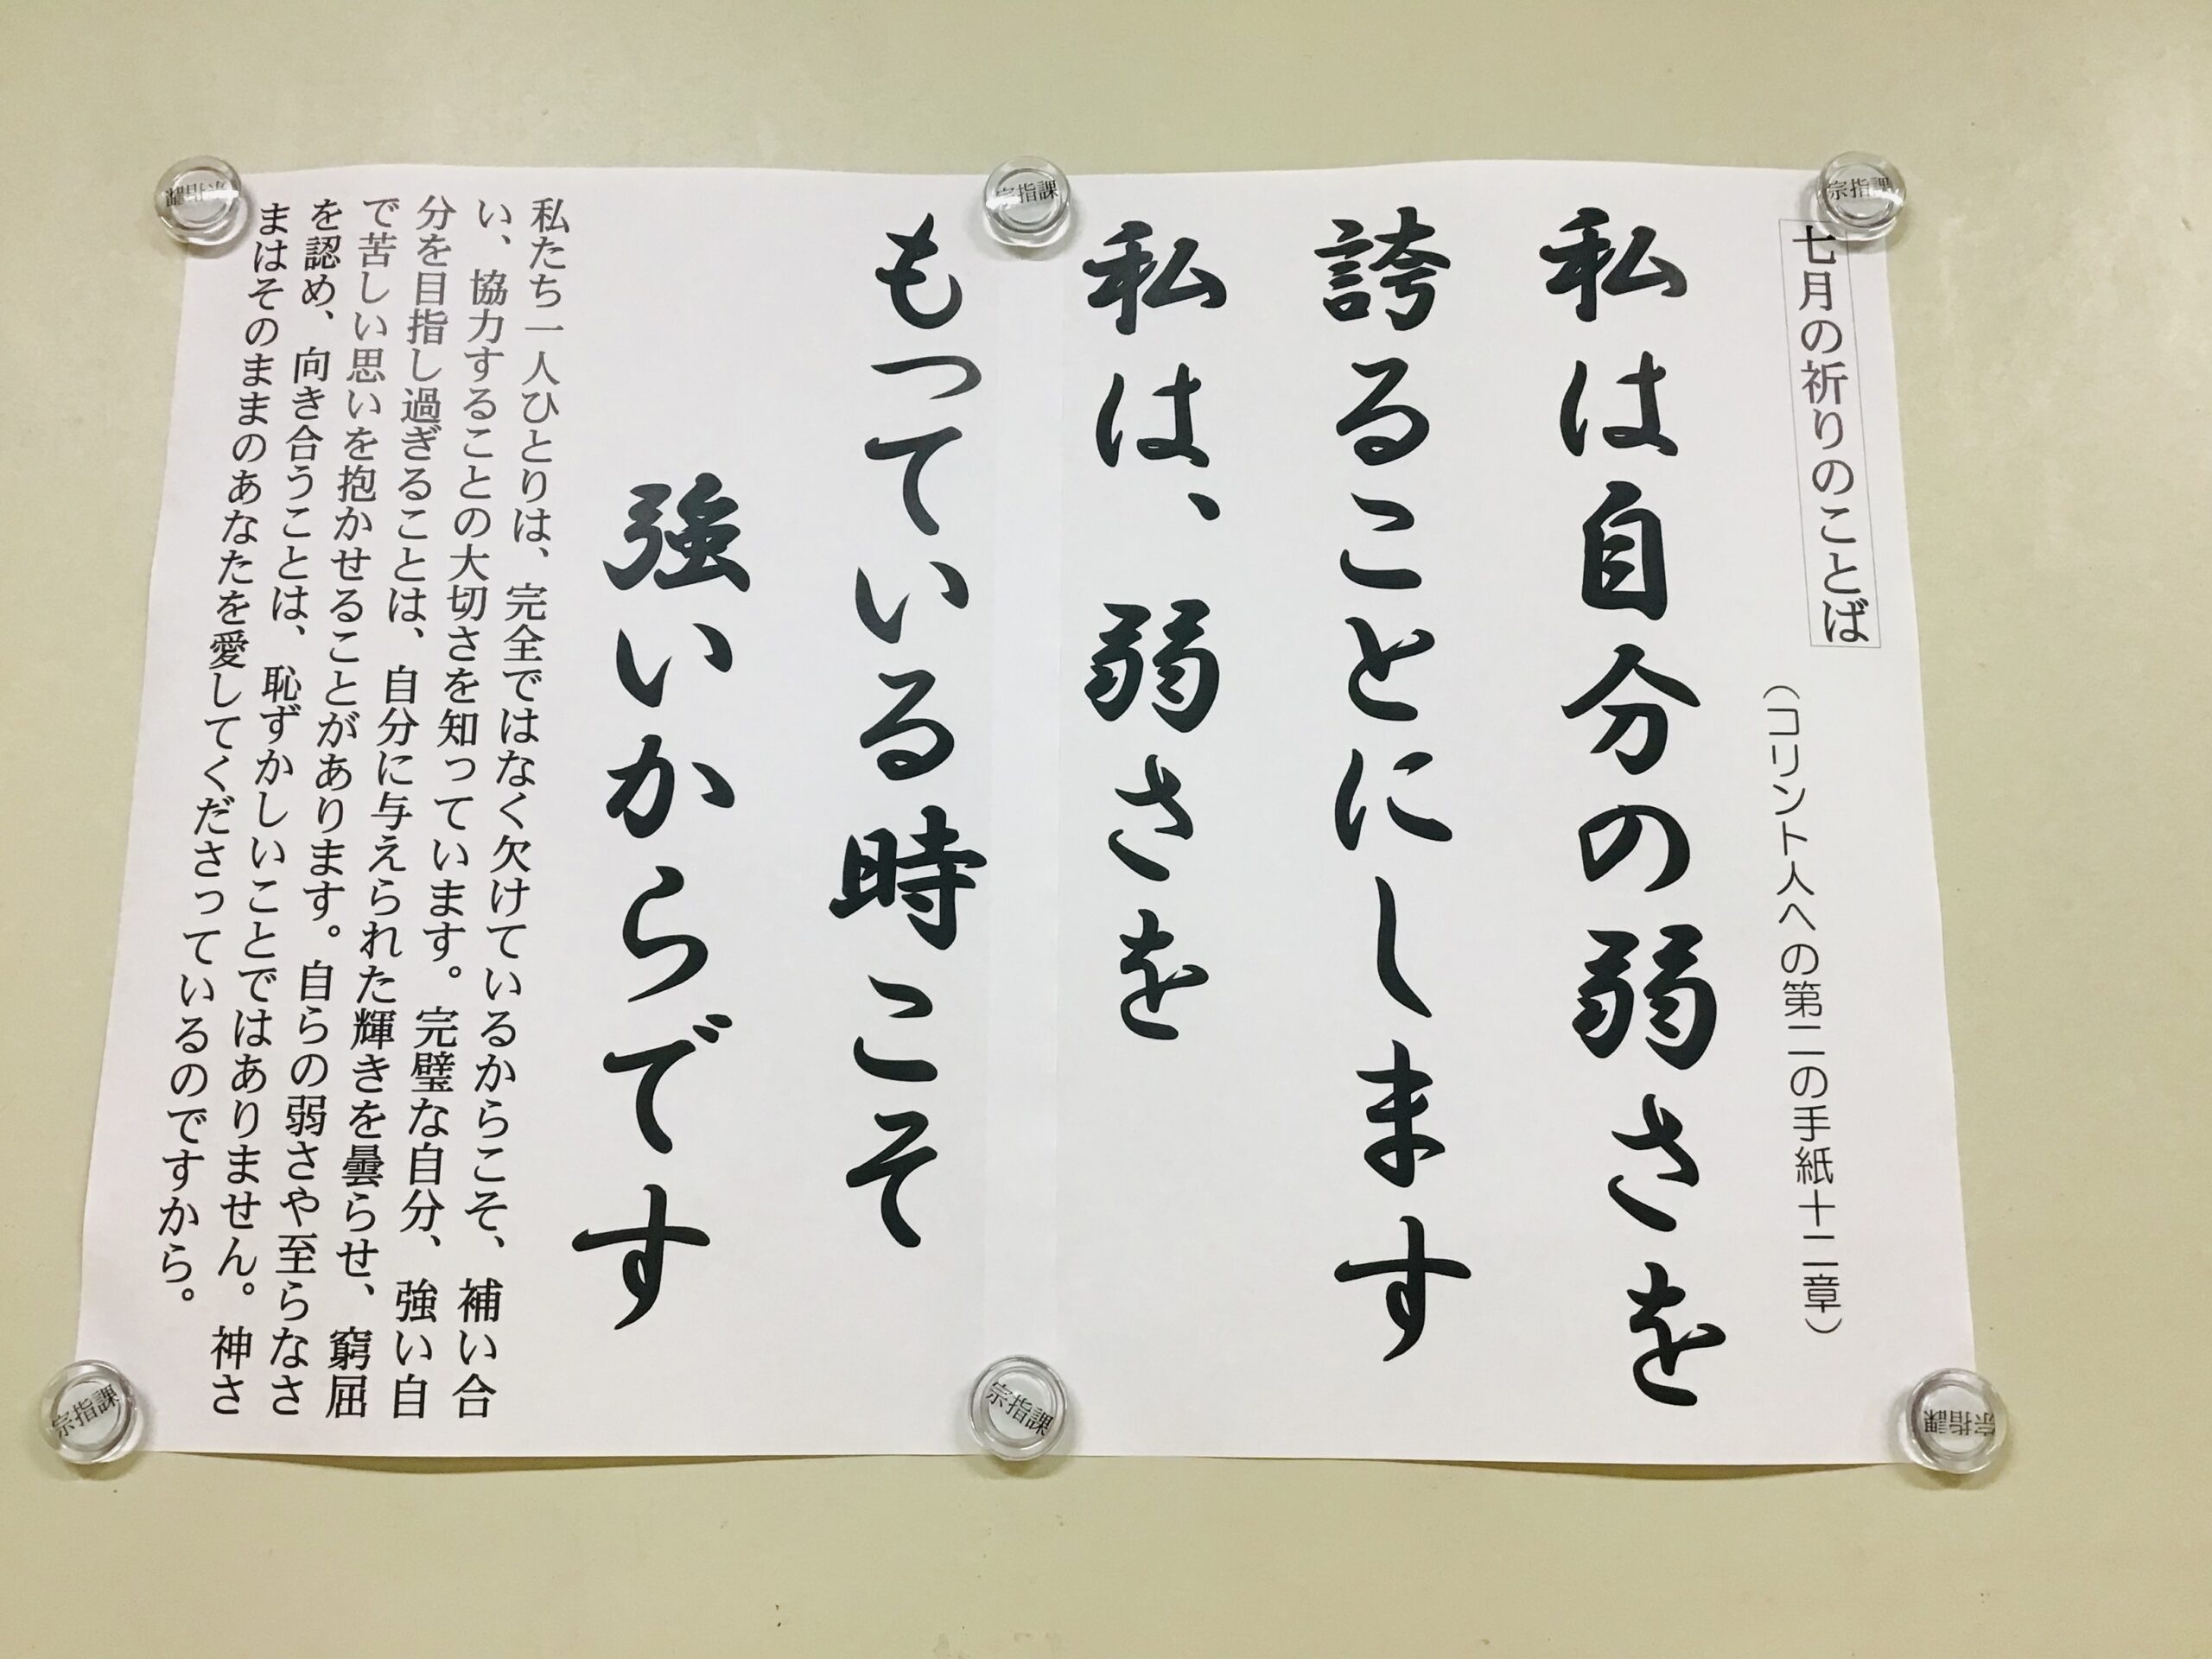 七月の祈りのことば
（コリント人への第二の手紙十二章）
私は自分の弱さを
誇ることにします
私は、弱さを
もっている時こそ
強いからです
私たち一人ひとりは、完全ではなく欠けているからこそ、補い合
い、協力することの大切さを知っています。完璧な自分、強い自
分を目指し過ぎることは、自分に与えられた輝きを曇らせ、窮屈
で苦しい思いを抱かせることがあります。自らの弱さや至らなさ
を認め、向き合うことは、恥ずかしいことではありません。神さ
まはそのままのあなたを愛してくださっているのですから。
宗指課
宗指課
宗指課
宗指課
宗指課
宗指課